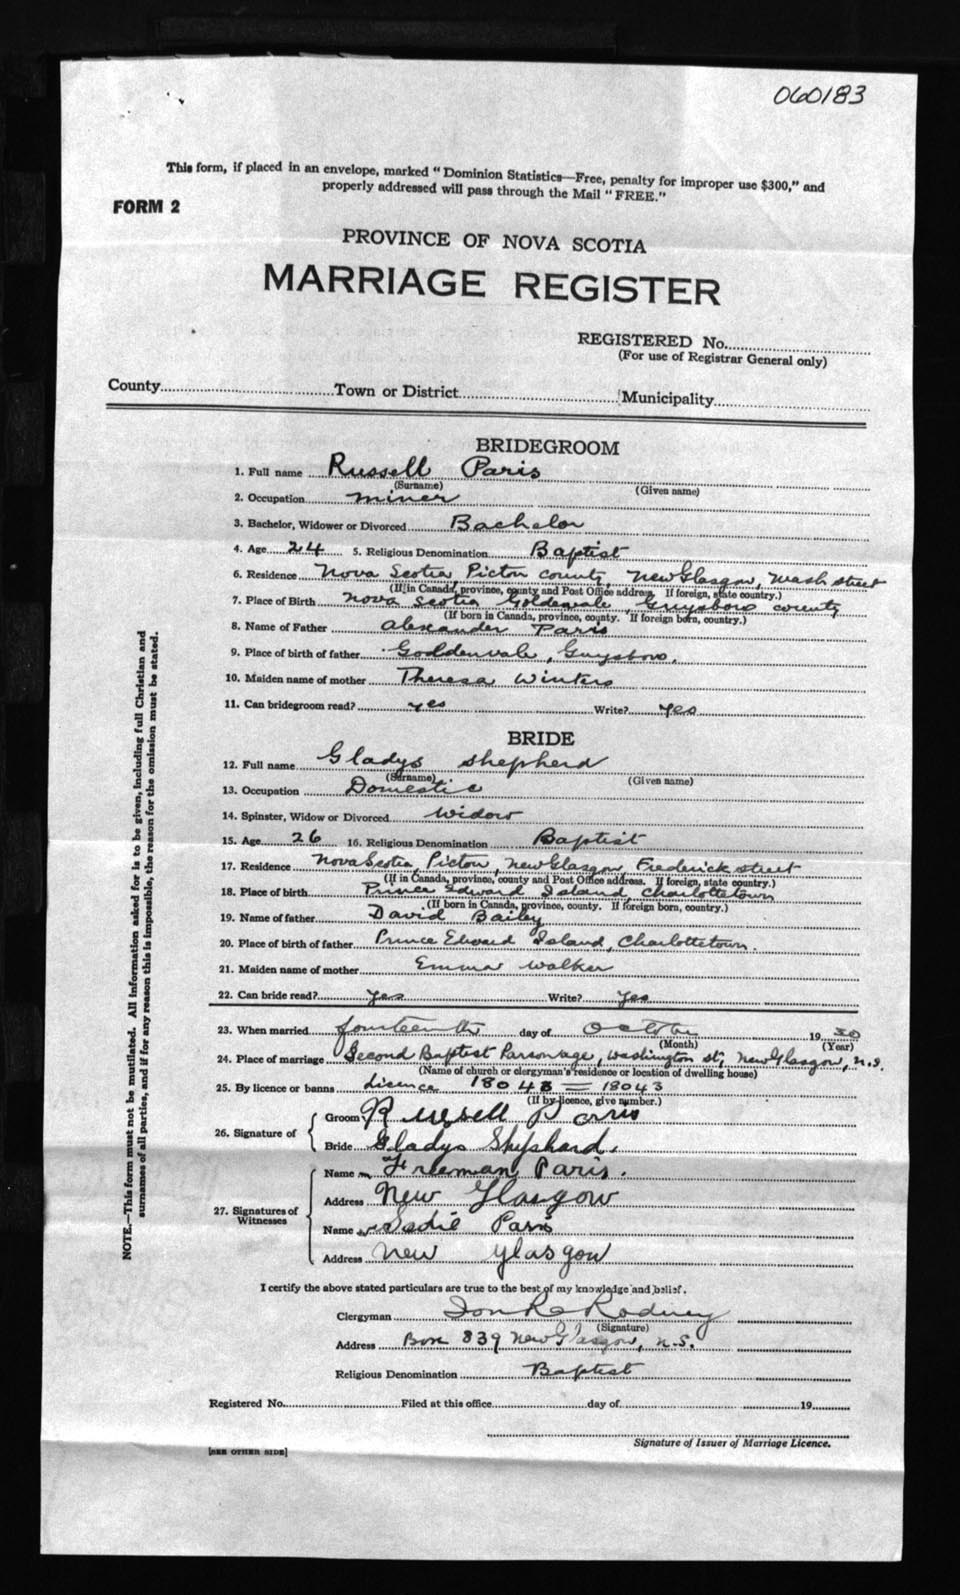 060183
This form, if placed in an envelope, marked "Dominion Statistics—Free, penalty for improper use $300," and
properly addressed will pass through the Mail "FREE."
FORM 2
PROVINCE OF NOVA SCOTIA
MARRIAGE REGISTER
REGISTERED No.
(For use of Registrar General only)
County Town or District Municipality
BRIDEGROOM
1. Full name Russell Paris
(Surname) (Given name)
2. Occupation miner
3. Bachelor, Widower or Divorced Bachelor
4. Age 24 5. Religious Denomination Baptist
6. Residence Nova Scotia, Picton county, New Glasgow, Wash street
(If in Canada, province, county and Post Office address. If foreign, state country.)
7. Place of Birth Nova Scotia Goldenvale, Guysboro county
(If born in Canada, province, county. If foreign born, country.)
8. Name of Father Alexander Paris
9. Place of birth of father Goldenvale, Guysboro.
10. Maiden name of mother Theresa Winters
11. Can bridegroom read? yes Write? yes
BRIDE
12. Full name Gladys Shepherd
(Surname) (Given name)
13. Occupation Domestic
14. Spinster, Widow or Divorced Widow
15. Age 26 16. Religious Denomination Baptist
17. Residence Nova Scotia, Picton, New Glasgow Frederick street
(If in Canada, province, county and Post Office address. If foreign, state country.)
18. Place of birth Prince Edward Island, Charlottetown
(If born in Canada, province, county. If foreign born, country.)
19. Name of father David Bailey
20. Place of birth of father Prince Edward Island, Charlottetown.
21. Maiden name of mother Emma Walker
22. Can bride read? yes Write? yes
23. When married fourteenth day of October 1930
(Month) (Year)
24. Place of marriage Second Baptist Parsonage, Washington st, New Glasgow, N.S.
(Name of church or clergyman's residence or location of dwelling house)
25. By licence or banns Licence 18043 = 18043
(If by licence, give number.)
26. Signature of Groom Russell Parris
Bride Gladys Shephard.
27. Signatures of Witnesses Name Freeman Paris.
Address New Glasgow
Name Sadie Paris
Address New Glasgow
I certify the above stated particulars are true to the best of my knowledge and belief.
Clergyman Rodney
(Signature)
Address Box 839 New Glasgow, N.S.
Religious Denomination Baptist
Registered No. Filed at this office day of 19
Signature of Issuer of Marriage Licence.
[SEE OTHER SIDE]
NOTE.—This form must not be mutilated. All information asked for is to be given, including full Christian and
surnames of all parties, and if for any reason this is impossible, the reason for the omission must be stated.